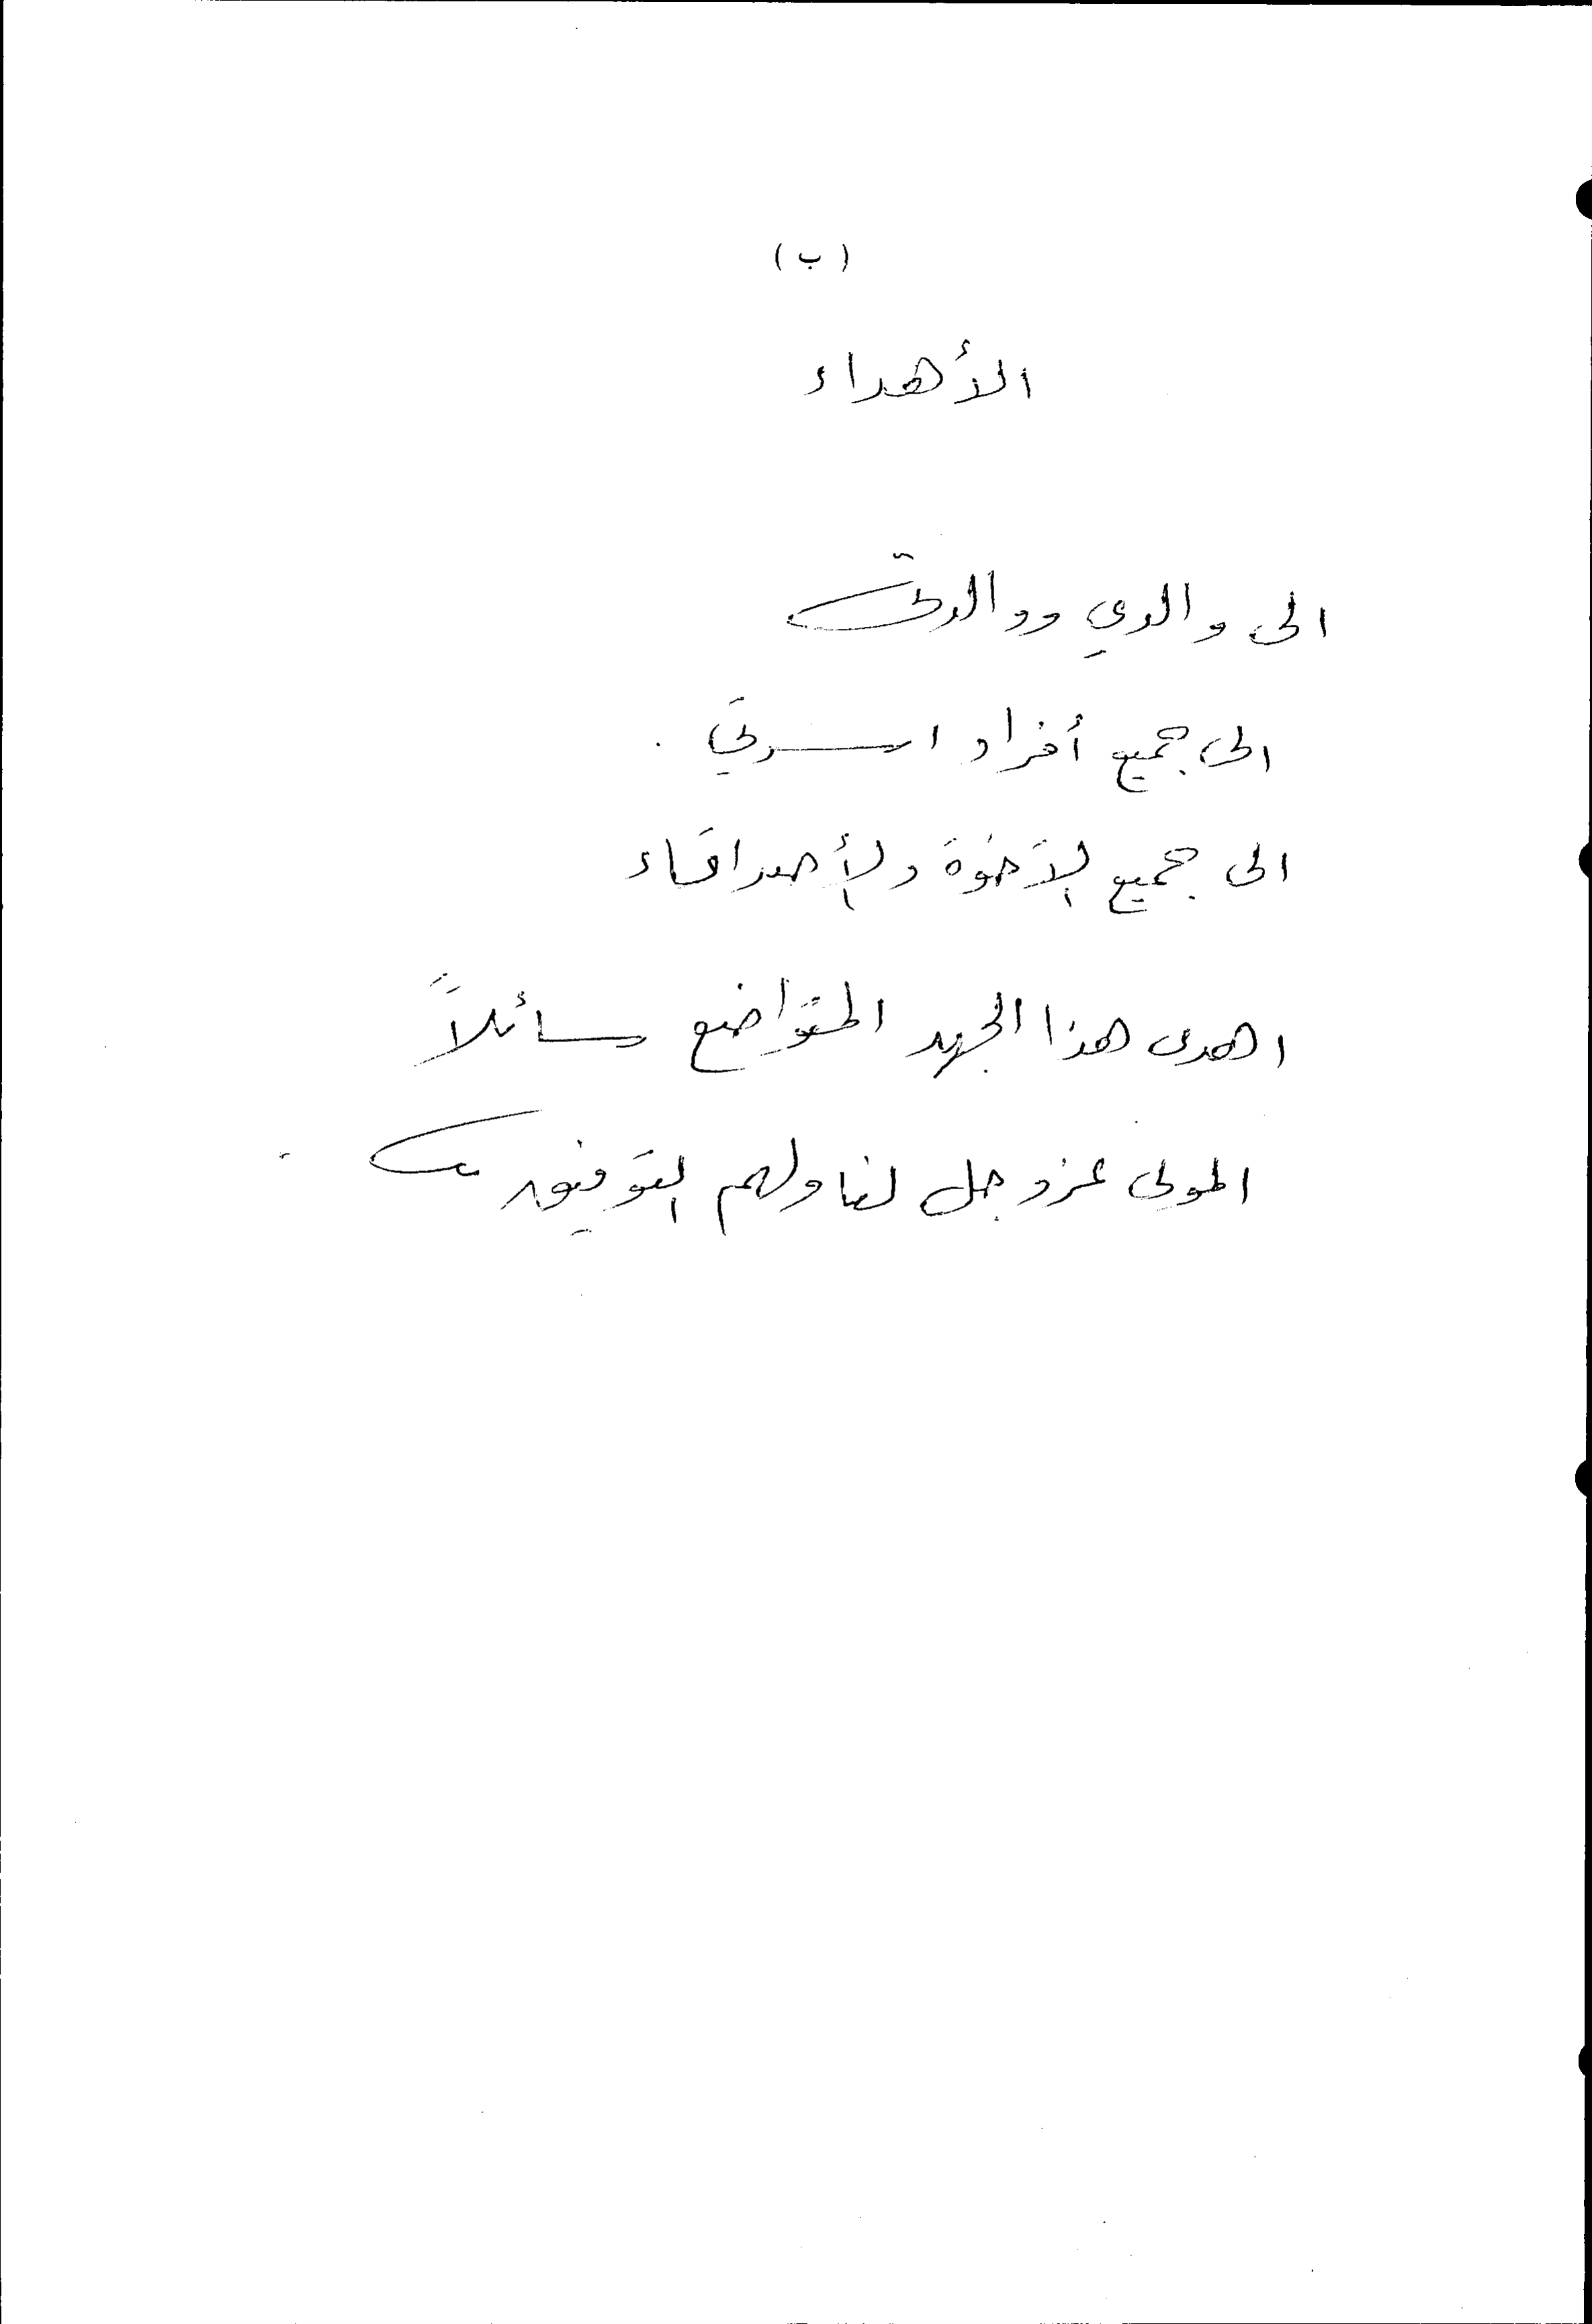 (ب)
الأهداء
الى والدي ووالدتى
الى جميع أفراد اسرتي .
الى جميع الاخوة والأصدقاء
اهدى هذا الجهد المتواضع سائلاً
المولى عز وجل لنا ولهم التوفيق